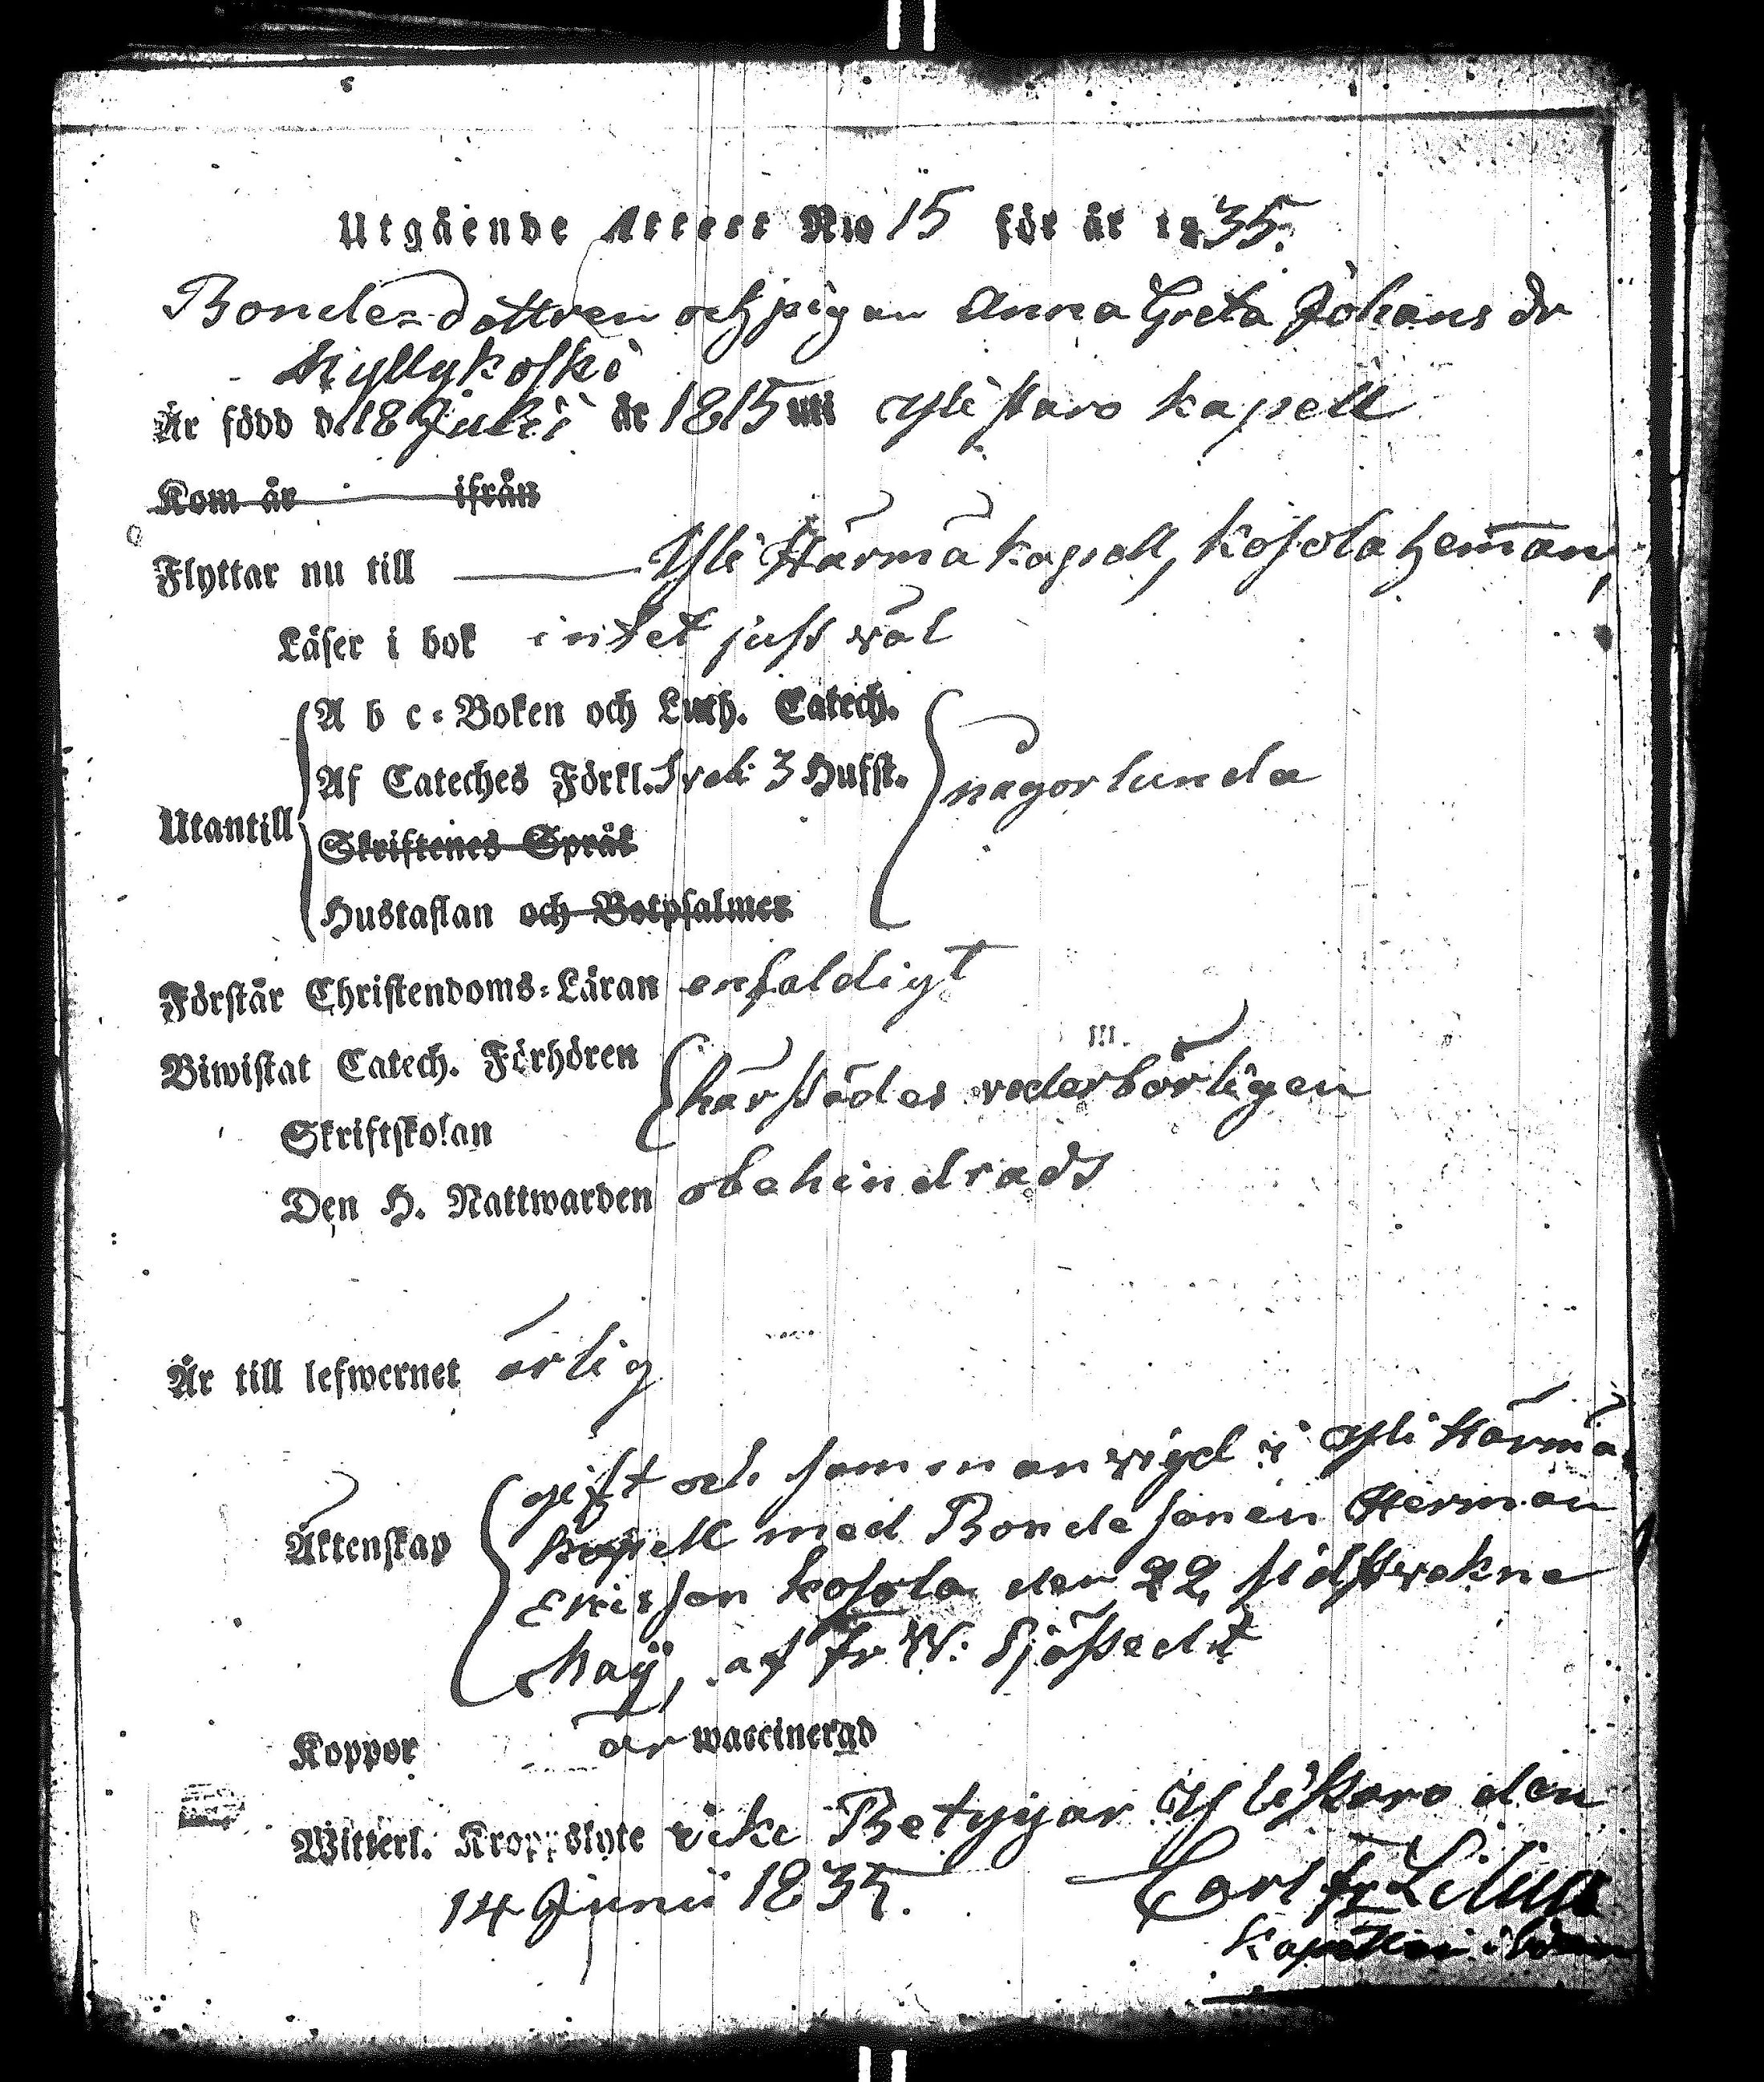 Utgående Attest No 15 för år 1835.
Bondesdottren och pigan Anna Greta Johans dr
Kyllykoski
Är född d. 18 Julii år 1815 uti Ylistaro kapell
Kom år ifrån
Flyttar nu till Yli Härmä kapell, Kosola heman,
Läser i bok intet just väl
A b c-Boken och Luth. Catech.
Af Cateches Förkl. 3 Hufst. någorlunda
Utantill
Skriftenes Språk
Hustaflan och Botpsalmer
Förstår Christendoms-Läran enfaldigt
Biwistat Catech. Förhören härstädes vederbörligen
Skriftskolan
Den H. Nattwarden obehindrads
Är till lefwernet ärlig
gift och sammanvigd i Yli Härmä
Äktenskap kapell med Bondesonen Herman
Ericsson Kosola den 22 sidstvekne
Maij, af Fr W: Sjöstedt
Koppor är waccinerad
Witterl. Kroppslyte icke Betygar Ylistaro den
14 Junii 1835. Carl Fr Lilius
Kapellan i